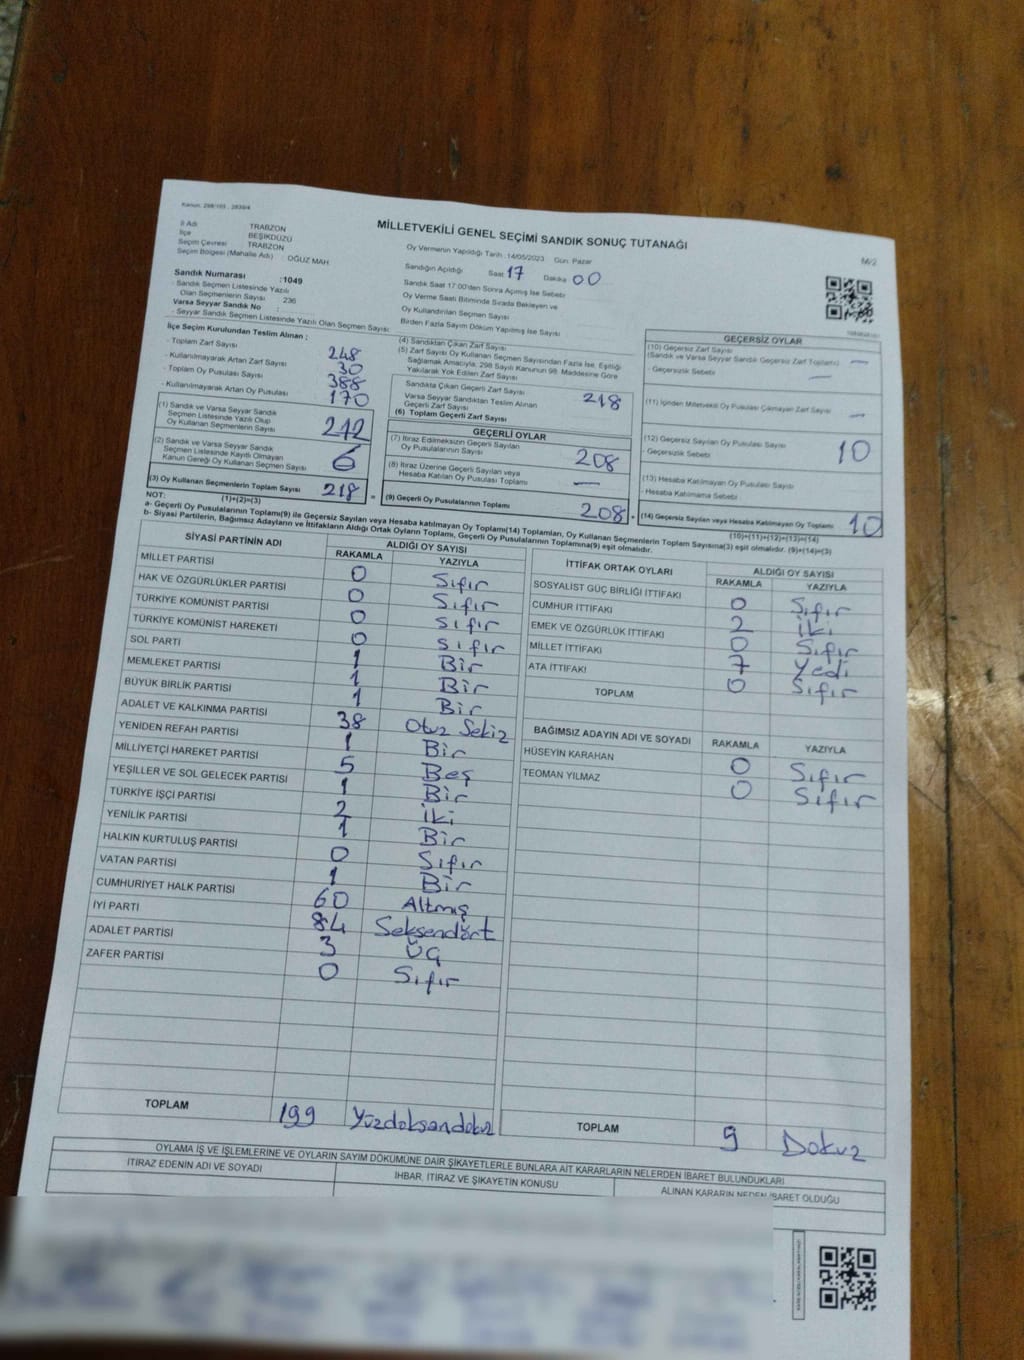 Kanun: 298/105 , 2839/4
MİLLETVEKİLİ GENEL SEÇİMİ SANDIK SONUÇ TUTANAĞI
M/2
İl Adı TRABZON
İlçe BEŞİKDÜZÜ
Seçim Çevresi TRABZON
Seçim Bölgesi (Mahalle Adı) : OĞUZ MAH
Oy Vermenin Yapıldığı Tarih :14/05/2023 Gün: Pazar
Sandığın Açıldığı Saat 17 Dakika 00
Sandık Saat 17:00'den Sonra Açılmış İse Sebebi
Oy Verme Saati Bitiminde Sırada Bekleyen ve
Oy Kullandırılan Seçmen Sayısı
Birden Fazla Sayım Döküm Yapılmış İse Sayısı
Sandık Numarası :1049
- Sandık Seçmen Listesinde Yazılı
Olan Seçmenlerin Sayısı : 236
Varsa Seyyar Sandık No :
- Seyyar Sandık Seçmen Listesinde Yazılı Olan Seçmen Sayısı:
İlçe Seçim Kurulundan Teslim Alınan ;
- Toplam Zarf Sayısı 248
- Kullanılmayarak Artan Zarf Sayısı 30
- Toplam Oy Pusulası Sayısı 388
- Kullanılmayarak Artan Oy Pusulası 170
(1) Sandık ve Varsa Seyyar Sandık
Seçmen Listesinde Yazılı Olup
Oy Kullanan Seçmenlerin Sayısı 212
(2) Sandık ve Varsa Seyyar Sandık
Seçmen Listesinde Kayıtlı Olmayan
Kanun Gereği Oy Kullanan Seçmen Sayısı 6
(3) Oy Kullanan Seçmenlerin Toplam Sayısı 218
(1)+(2)=(3)
(4) Sandıktan Çıkan Zarf Sayısı
(5) Zarf Sayısı Oy Kullanan Seçmen Sayısından Fazla İse, Eşitliği
Sağlamak Amacıyla, 298 Sayılı Kanunun 98. Maddesine Göre
Yakılarak Yok Edilen Zarf Sayısı
Sandıkta Çıkan Geçerli Zarf Sayısı 218
Varsa Seyyar Sandıktan Teslim Alınan
Geçerli Zarf Sayısı
(6) Toplam Geçerli Zarf Sayısı
GEÇERLİ OYLAR
(7) İtiraz Edilmeksizin Geçerli Sayılan
Oy Pusulalarının Sayısı 208
(8) İtiraz Üzerine Geçerli Sayılan veya
Hesaba Katılan Oy Pusulası Toplamı —
= (9) Geçerli Oy Pusulalarının Toplamı 208
GEÇERSİZ OYLAR
(10) Geçersiz Zarf Sayısı
(Sandık ve Varsa Seyyar Sandık Geçersiz Zarf Toplamı) —
- Geçersizlik Sebebi —
(11) İçinden Milletvekili Oy Pusulası Çıkmayan Zarf Sayısı —
(12) Geçersiz Sayılan Oy Pusulası Sayısı 10
- Geçersizlik Sebebi
(13) Hesaba Katılmayan Oy Pusulası Sayısı
- Hesaba Katılmama Sebebi
+ (14) Geçersiz Sayılan veya Hesaba Katılmayan Oy Toplamı 10
(10)+(11)+(12)+(13)=(14)
NOT:
a- Geçerli Oy Pusulalarının Toplamı(9) ile Geçersiz Sayılan veya Hesaba katılmayan Oy Toplamı(14) Toplamları, Oy Kullanan Seçmenlerin Toplam Sayısına(3) eşit olmalıdır. (9)+(14)=(3)
b- Siyasi Partilerin, Bağımsız Adayların ve İttifakların Aldığı Ortak Oyların Toplamı, Geçerli Oy Pusulalarının Toplamına(9) eşit olmalıdır.
SİYASİ PARTİNİN ADI ALDIĞI OY SAYISI
RAKAMLA YAZIYLA
MİLLET PARTİSİ 0 Sıfır
HAK VE ÖZGÜRLÜKLER PARTİSİ 0 Sıfır
TÜRKİYE KOMÜNİST PARTİSİ 0 Sıfır
TÜRKİYE KOMÜNİST HAREKETİ 0 Sıfır
SOL PARTİ 1 Bir
MEMLEKET PARTİSİ 1 Bir
BÜYÜK BİRLİK PARTİSİ 1 Bir
ADALET VE KALKINMA PARTİSİ 38 Otuz Sekiz
YENİDEN REFAH PARTİSİ 1 Bir
MİLLİYETÇİ HAREKET PARTİSİ 5 Beş
YEŞİLLER VE SOL GELECEK PARTİSİ 1 Bir
TÜRKİYE İŞÇİ PARTİSİ 2 İki
YENİLİK PARTİSİ 1 Bir
HALKIN KURTULUŞ PARTİSİ 0 Sıfır
VATAN PARTİSİ 1 Bir
CUMHURİYET HALK PARTİSİ 60 Altmış
İYİ PARTİ 84 Seksendört
ADALET PARTİSİ 3 Üç
ZAFER PARTİSİ 0 Sıfır
TOPLAM 199 Yüzdoksandokuz
İTTİFAK ORTAK OYLARI ALDIĞI OY SAYISI
RAKAMLA YAZIYLA
SOSYALİST GÜÇ BİRLİĞİ İTTİFAKI 0 Sıfır
CUMHUR İTTİFAKI 2 İki
EMEK VE ÖZGÜRLÜK İTTİFAKI 0 Sıfır
MİLLET İTTİFAKI 7 Yedi
ATA İTTİFAKI 0 Sıfır
TOPLAM
BAĞIMSIZ ADAYIN ADI VE SOYADI RAKAMLA YAZIYLA
HÜSEYİN KARAHAN 0 Sıfır
TEOMAN YILMAZ 0 Sıfır
TOPLAM 9 Dokuz
OYLAMA İŞ VE İŞLEMLERİNE VE OYLARIN SAYIM DÖKÜMÜNE DAİR ŞİKAYETLERLE BUNLARA AİT KARARLARIN NELERDEN İBARET BULUNDUKLARI
İTİRAZ EDENİN ADI VE SOYADI İHBAR, İTİRAZ VE ŞİKAYETİN KONUSU ALINAN KARARIN NEDEN İBARET OLDUĞU